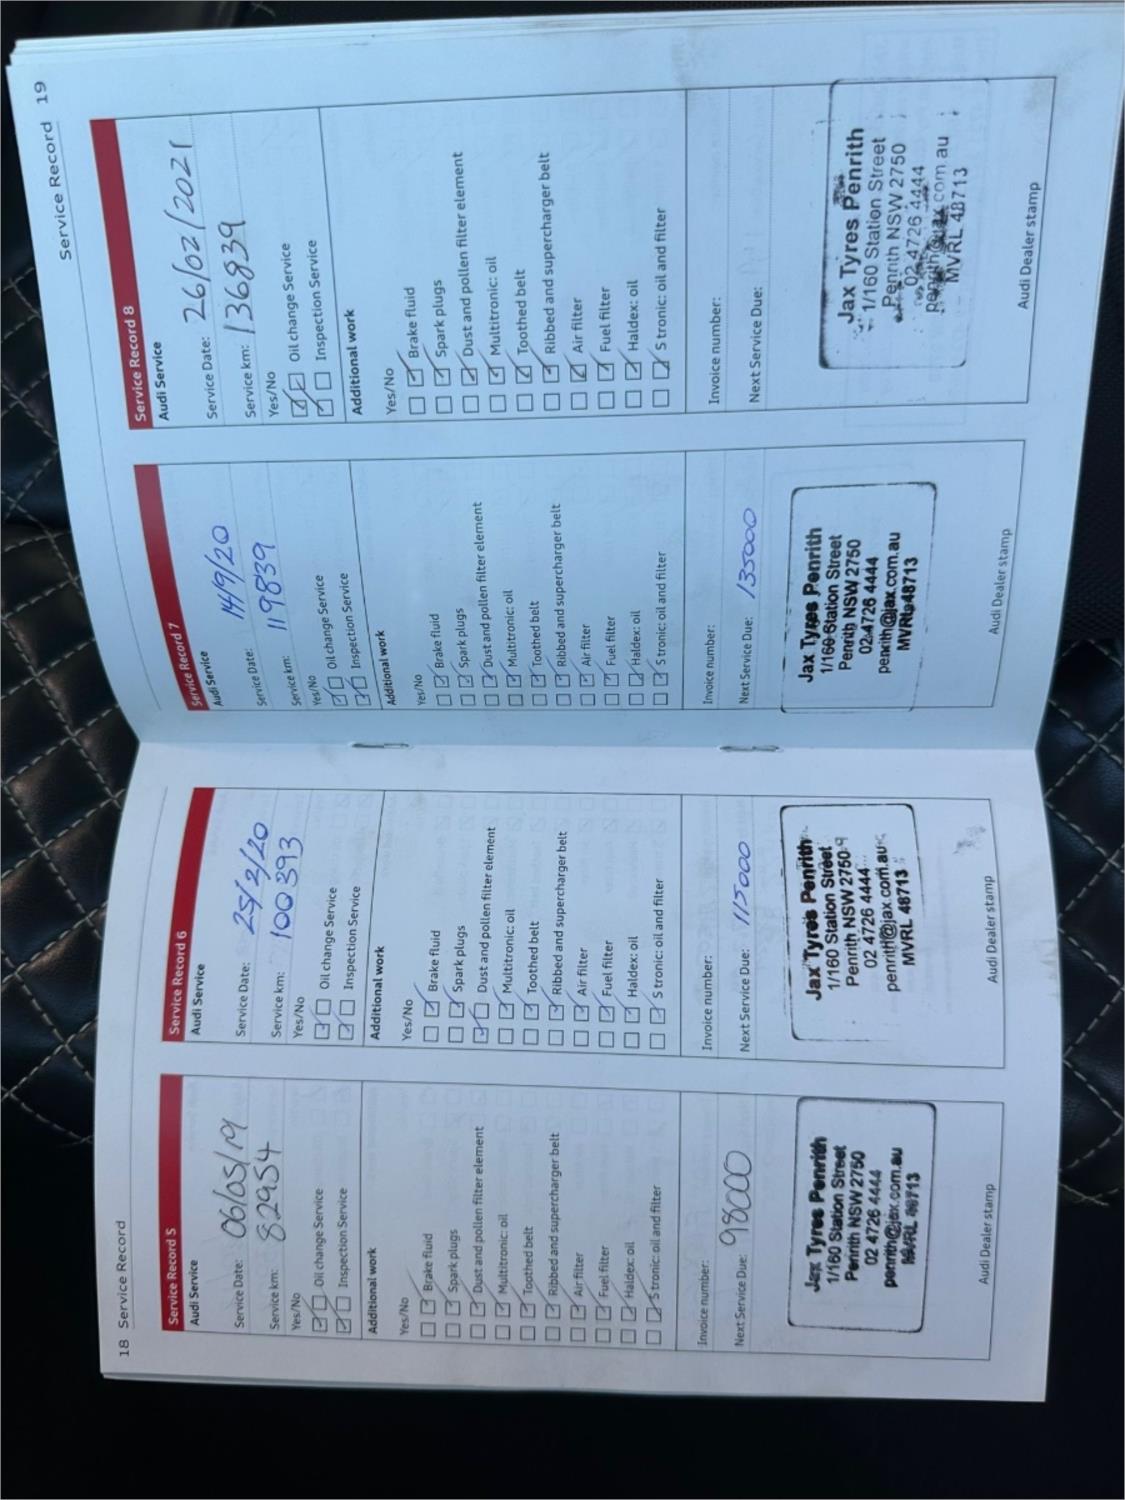 18 Service Record
Service Record 5
Audi Service
Service Date: 06/05/19
Service km: 82954
Yes/No
Oil change Service
Inspection Service
Additional work
Yes/No
Brake fluid
Spark plugs
Dust and pollen filter element
Multitronic: oil
Toothed belt
Ribbed and supercharger belt
Air filter
Fuel filter
Haldex: oil
S tronic: oil and filter
Invoice number:
Next Service Due: 98000
Jax Tyres Penrith
1/160 Station Street
Penrith NSW 2750
02 4726 4444
penrith@jax.com.au
MVRL 48713
Audi Dealer stamp
Service Record 6
Audi Service
Service Date: 25/2/20
Service km: 100393
Yes/No
Oil change Service
Inspection Service
Additional work
Yes/No
Brake fluid
Spark plugs
Dust and pollen filter element
Multitronic: oil
Toothed belt
Ribbed and supercharger belt
Air filter
Fuel filter
Haldex: oil
S tronic: oil and filter
Invoice number:
Next Service Due: 115000
Jax Tyres Penrith
1/160 Station Street
Penrith NSW 2750
02 4726 4444
penrith@jax.com.au
MVRL 48713
Audi Dealer stamp
Service Record 19
Service Record 7
Audi Service
Service Date: 14/9/20
Service km: 119839
Yes/No
Oil change Service
Inspection Service
Additional work
Yes/No
Brake fluid
Spark plugs
Dust and pollen filter element
Multitronic: oil
Toothed belt
Ribbed and supercharger belt
Air filter
Fuel filter
Haldex: oil
S tronic: oil and filter
Invoice number:
Next Service Due: 135000
Jax Tyres Penrith
1/160 Station Street
Penrith NSW 2750
02 4726 4444
penrith@jax.com.au
MVRL 48713
Audi Dealer stamp
Service Record 8
Audi Service
Service Date: 26/02/2021
Service km: 136839
Yes/No
Oil change Service
Inspection Service
Additional work
Yes/No
Brake fluid
Spark plugs
Dust and pollen filter element
Multitronic: oil
Toothed belt
Ribbed and supercharger belt
Air filter
Fuel filter
Haldex: oil
S tronic: oil and filter
Invoice number:
Next Service Due:
Jax Tyres Penrith
1/160 Station Street
Penrith NSW 2750
02 4726 4444
penrith@jax.com.au
MVRL 48713
Audi Dealer stamp